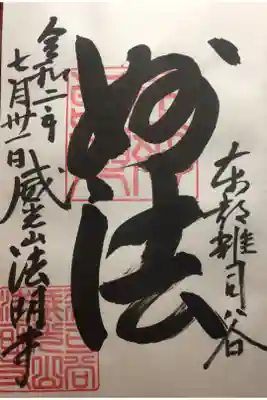 東都雑司谷
妙法
令和二年
七月卅一日威光山法明寺